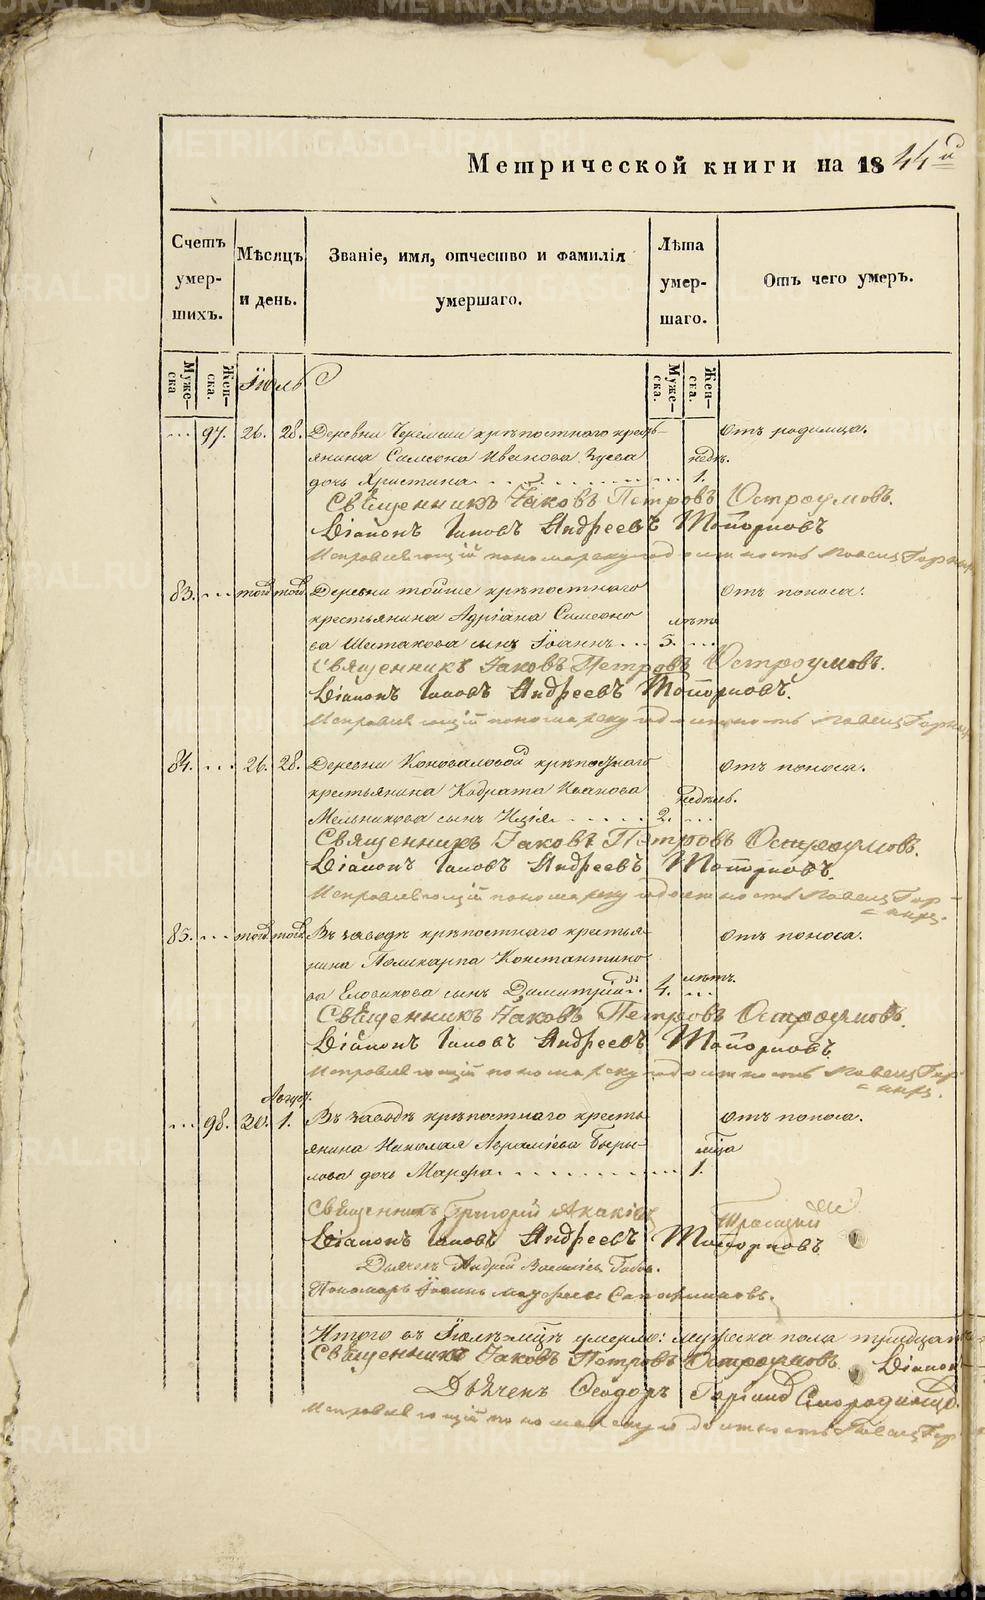 METRIKI.GASO-URAL.RU
Метрической книги на 1844й
Счетъ умершихъ.
Мѣсяцъ и день.
Званіе, имя, отчество и фамилія умершаго.
Лѣта умершаго.
Отъ чего умеръ.
Мужеска
Женска.
Іюль
Мужеска.
Женска.
97. 26. 28. Деревни Черемши крѣпостнаго кресть- Отъ родимца.
янина Симеона Иванова Зуева недѣ.
дочь Христина 1.
Священникъ Іаковъ Петровъ Остроумовъ.
Діаконъ Іаковъ Андреевъ Топорковъ
Исправляющій пономарскую должность
83. тогожъ тогожъ Деревни тойже крѣпостнаго Отъ поноса.
крестьянина Адріана Симеоно- лѣтъ
ва Шестакова сынъ Іоаннъ 5.
Священникъ Іаковъ Петровъ Остроумовъ.
Діаконъ Іаковъ Андреевъ Топорковъ.
Исправляющій пономарскую должность
84. 26. 28. Деревни Коноваловой крѣпостнаго Отъ поноса.
крестьянина Кодрата Иванова недѣль.
Мельникова сынъ Илія 2.
Священникъ Іаковъ Петровъ Остроумовъ.
Діаконъ Іаковъ Андреевъ Топорковъ.
Исправляющій пономарскую должность
85. тогожъ тогожъ Въ заводѣ крѣпостнаго крестья- Отъ поноса.
нина Поликарпа Константино-
ва сынъ Димитрій 4. лѣтъ.
Священникъ Іаковъ Петровъ Остроумовъ.
Діаконъ Іаковъ Андреевъ Топорковъ.
Исправляющій пономарскую должность
Август.
98. 30. 1. Въ заводѣ крѣпостнаго кресть- Отъ поноса.
янина Николая Авраміева Быры- мѣца
лова дочь Марфа 1.
Священникъ Григорій
Діаконъ Іаковъ Андреевъ Топорковъ
Дьячекъ Андрей Василіевъ
Пономарь Іоаннъ Сапожниковъ.
Итого въ Іюлѣ мцѣ умерло: мужеска пола тридцать
Священникъ Іаковъ Петровъ Остроумовъ. Діакон
Дьячекъ Ѳеодоръ Смородинцовъ.
Исправляющій пономарскую должность